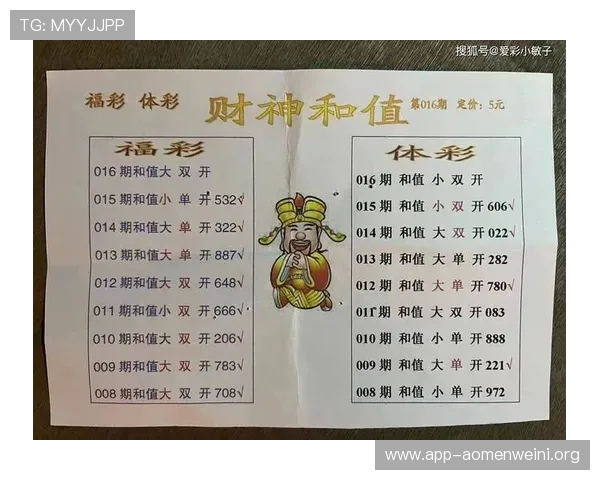 TG: MYYJJPP
搜狐号@爱彩小敏子
福彩 体彩 财神和值 第016期 定价：5元
福彩
016期和值大 双 开
015期和值小 单 开532√
014期和值大 单 开322√
013期和值大 单 开887√
012期和值大 双 开648√
011期和值小 双 开666√
010期和值大 双 开206√
009期和值大 双 开783√
008期和值大 双 开708√
体彩
016期 和值 小 双 开
015期 和值 小 双 开606√
014期 和值 大 双 开022√
013期 和值 大 单 开282
012期 和值 大 单 开780√
011期 和值 大 双 开083
010期 和值 小 单 开888
009期 和值 大 单 开221√
008期 和值 小 单 开972
www.app-aomenweini.org